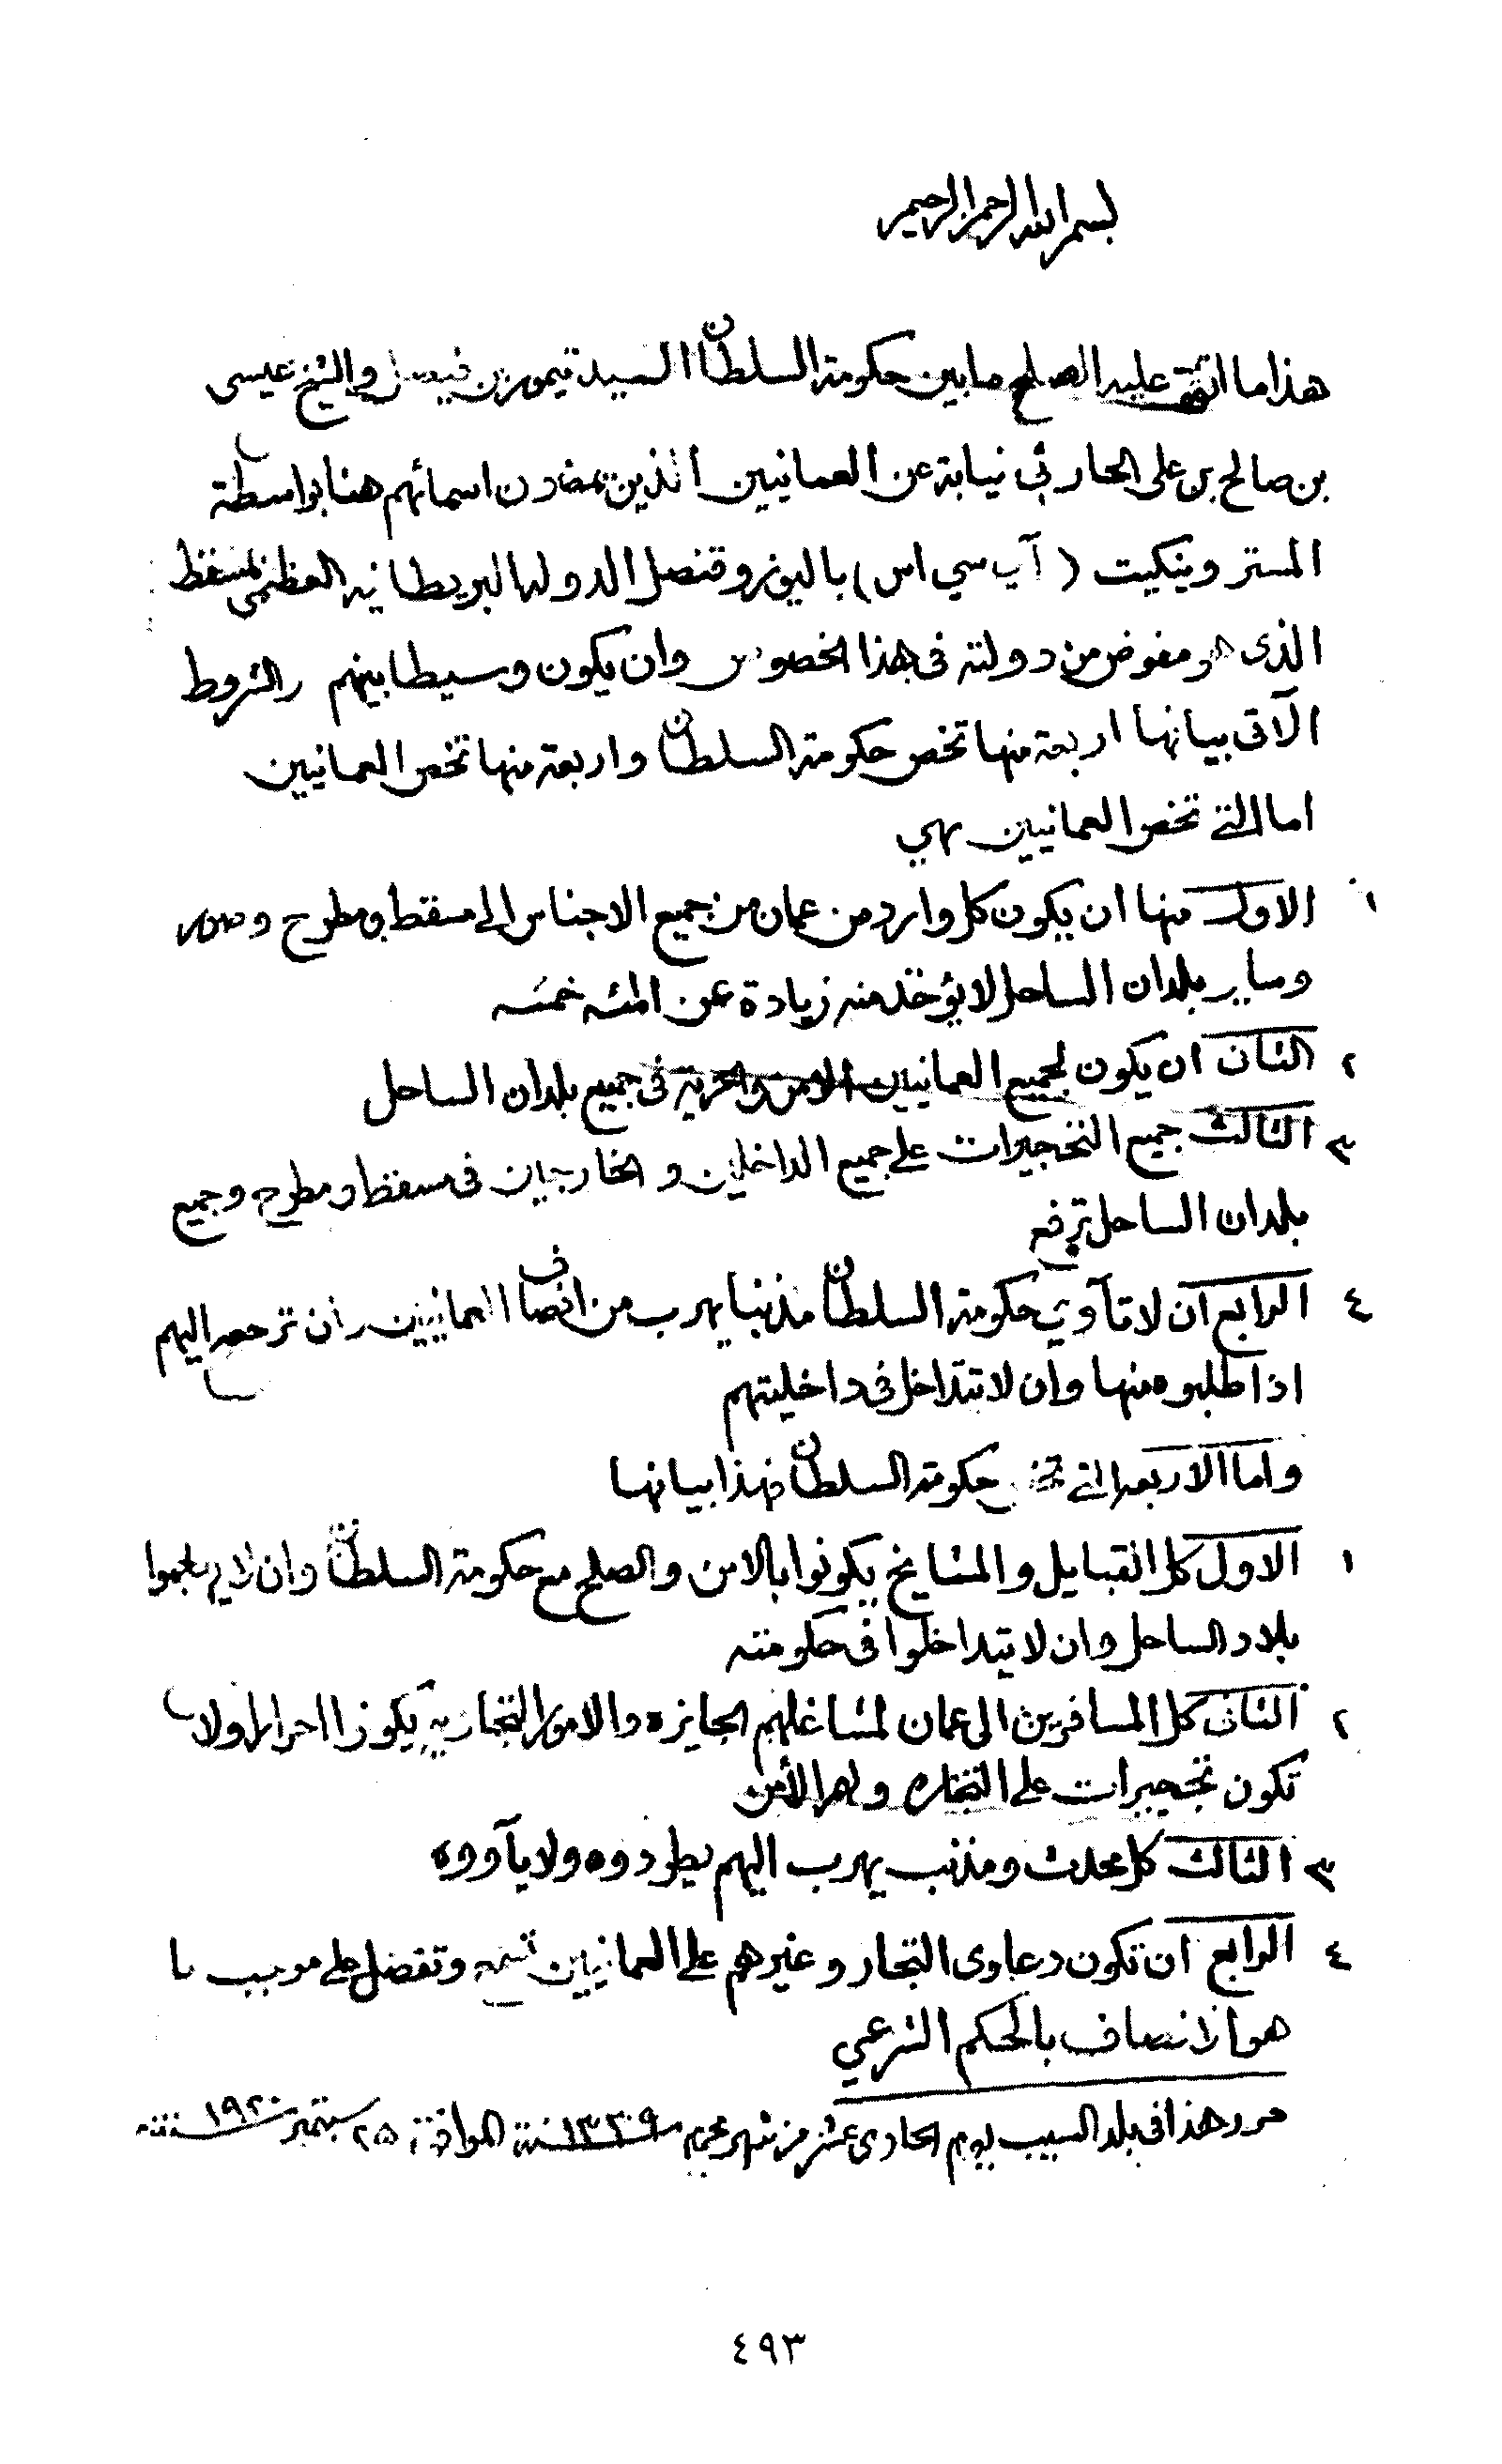 بسم الله الرحمن الرحيم
هذا ما اتفق عليه الصلح ما بين حكومة السلطان السيد تيمور بن فيصل والشيخ عيسى
بن صالح بن علي الحارثي نيابة عن العمانيين الذين يمضون اسمائهم هنا بواسطة
المستر وينكيت ( آي سي اس ) باليوز وقنصل الدولة البريطانيه العظمى بمسقط
الذى هو مفوض من دولته فى هذا الخصوص وان يكون وسيطا بينهم والشروط
الآتى بيانها اربعة منها تخص حكومة السلطان واربعة منها تخص العمانيين
اما التى تخص العمانيين فهي
١ الاول منها ان يكون كل وارد من عمان من جميع الاجناس الى مسقط ومطرح وصور
وساير بلدان الساحل لا يؤخذ منه زيادة عن المئه خمسه
٢ الثانى ان يكون لجميع العمانيين الامن والحرية فى جميع بلدان الساحل
٣ الثالث جميع التحجيرات على جميع الداخلين و الخارجين فى مسقط ومطرح وجميع
بلدان الساحل ترفع
٤ الرابع ان لا تآوي حكومة السلطان مذنبا يهرب من انصاف العمانيين وان ترجعه اليهم
اذا طلبوه منها وان لا تتداخل فى داخليتهم
واما الاربعه التى تخص حكومة السلطان فهذا بيانها
١ الاول كل القبايل والمشايخ يكونوا بالامن والصلح مع حكومة السلطان وان لا يهاجموا
بلاد الساحل وان لا يتداخلوا فى حكومته
٢ الثانى كل المسافرين الى عمان لمشاغلهم الجايزه والامور التجاريه يكونوا احرارا ولا
تكون تحجيرات على التجاره ولهم الأمن
٣ الثالث كل محدث ومذنب يهرب اليهم يطردوه ولا يآووه
٤ الرابع ان تكون دعاوى التجار وغيرهم على العمانيين تسمع وتفصل على موجب ما
هو الانصاف بالحكم الشرعي
حرر هذا فى بلد السيب يوم الحادى عشر من شهر محرم سنة ١٣٣٩ الموافق ٢٥ سبتمبر سنة ١٩٢٠
٤٩٣